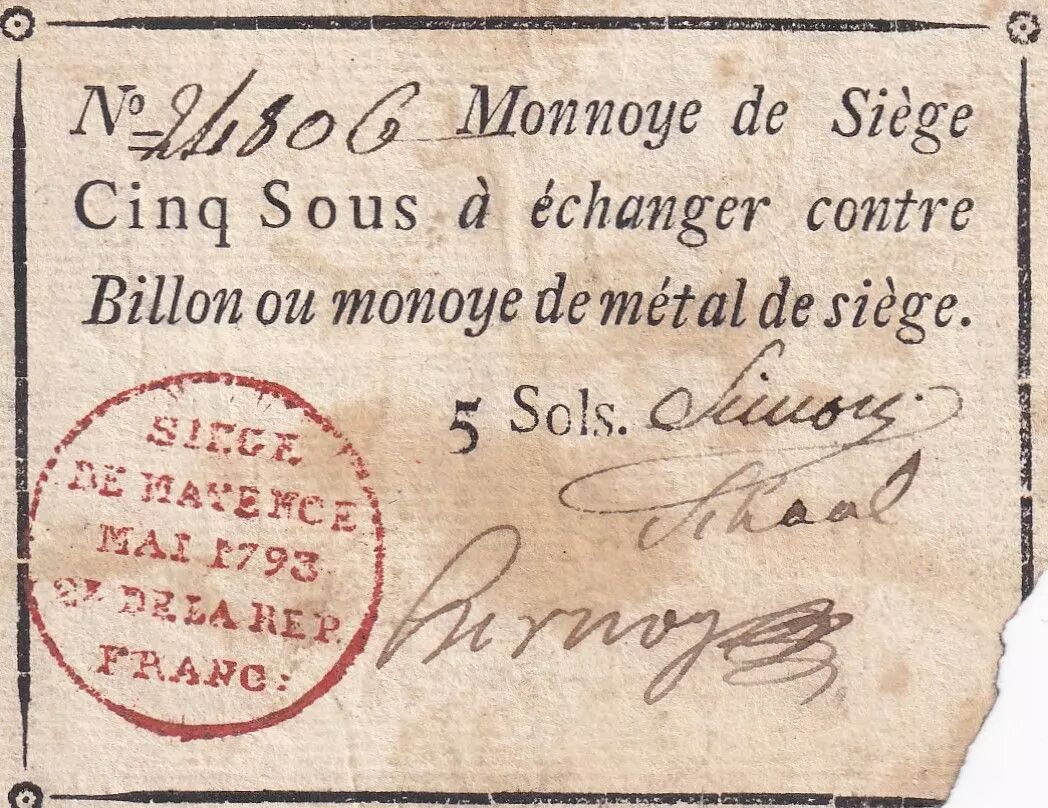 Nº 24806 Monnoye de Siège
Cinq Sous à échanger contre
Billon ou monoye de métal de siège.
5 Sols. Simon
Schaal
SIEGE
DE MAYENCE
MAI 1793
2E DE LA REP
FRANC: